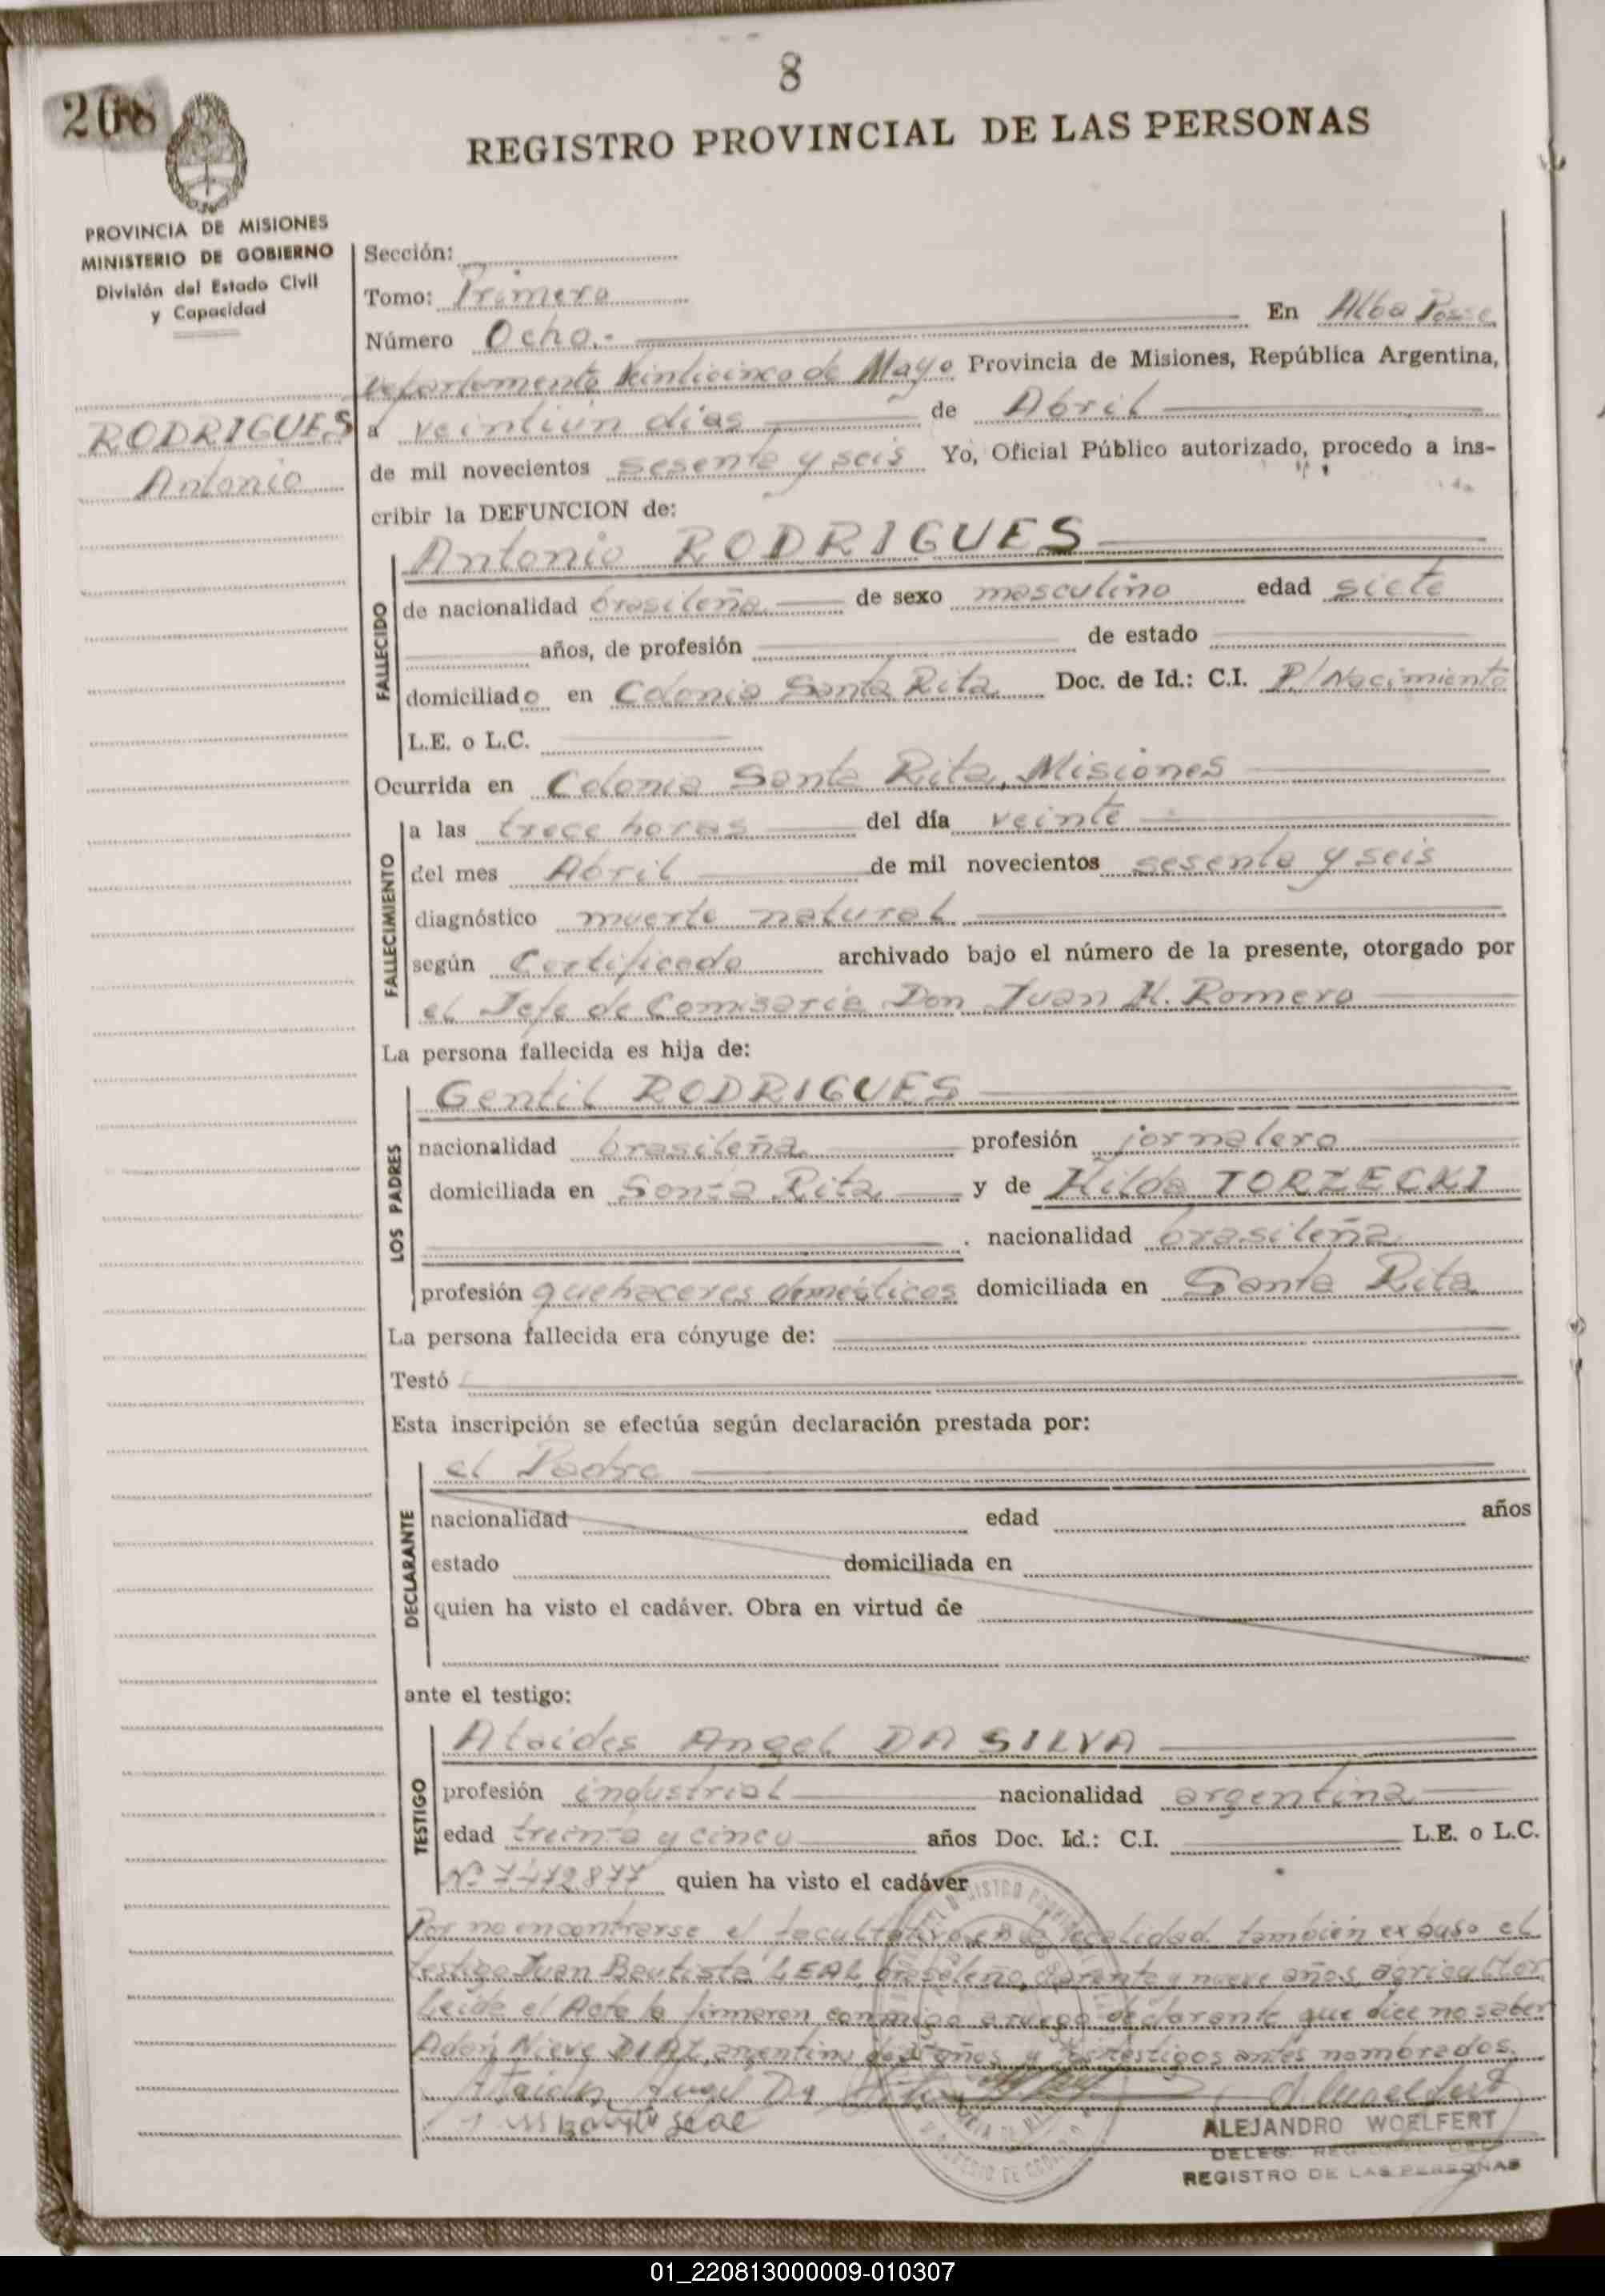 8
208
REGISTRO PROVINCIAL DE LAS PERSONAS
PROVINCIA DE MISIONES
MINISTERIO DE GOBIERNO
División del Estado Civil
y Capacidad
RODRIGUES
Antonio
Sección:
Tomo: Primero
Número Ocho.- En Alba Posse
Departamento Veinticinco de Mayo Provincia de Misiones, República Argentina,
a veintiún días de Abril
de mil novecientos sesenta y seis Yo, Oficial Público autorizado, procedo a ins-
cribir la DEFUNCION de:
Antonio RODRIGUES
FALLECIDO
de nacionalidad brasileña de sexo masculino edad siete
años, de profesión de estado
domiciliado en Colonia Santa Rita Doc. de Id.: C.I. P/Nacimiento
L.E. o L.C.
Ocurrida en Colonia Santa Rita, Misiones
FALLECIMIENTO
a las trece horas del día veinte
del mes Abril de mil novecientos sesenta y seis
diagnóstico muerte natural
según Certificado archivado bajo el número de la presente, otorgado por
el Jefe de Comisaría Don Juan H. Romero
La persona fallecida es hija de:
LOS PADRES
Gentil RODRIGUES
nacionalidad brasileña profesión jornalero
domiciliada en Santa Rita y de Hilda TORZECKI
. nacionalidad brasileña
profesión quehaceres domésticos domiciliada en Santa Rita
La persona fallecida era cónyuge de:
Testó
Esta inscripción se efectúa según declaración prestada por:
DECLARANTE
el Padre
nacionalidad edad años
estado domiciliada en
quien ha visto el cadáver. Obra en virtud de
ante el testigo:
TESTIGO
Ataides Angel DA SILVA
profesión industrial nacionalidad argentina
edad treinta y cinco años Doc. Id.: C.I. L.E. o L.C.
Nº 7472877 quien ha visto el cadáver
Por no encontrarse el facultativo en la localidad también expuso el
testigo Juan Bautista LEAL, brasileño, cuarenta y nueve años, agricultor
Leida el Acta la firmaron conmigo a ruego declarante que dice no saber
Adán Nieve DIAZ, argentino años y los testigos antes nombrados.
Angel Da
Leal
ALEJANDRO WOELFERT
DELEG.
REGISTRO DE LAS PERSONAS
01_220813000009-010307